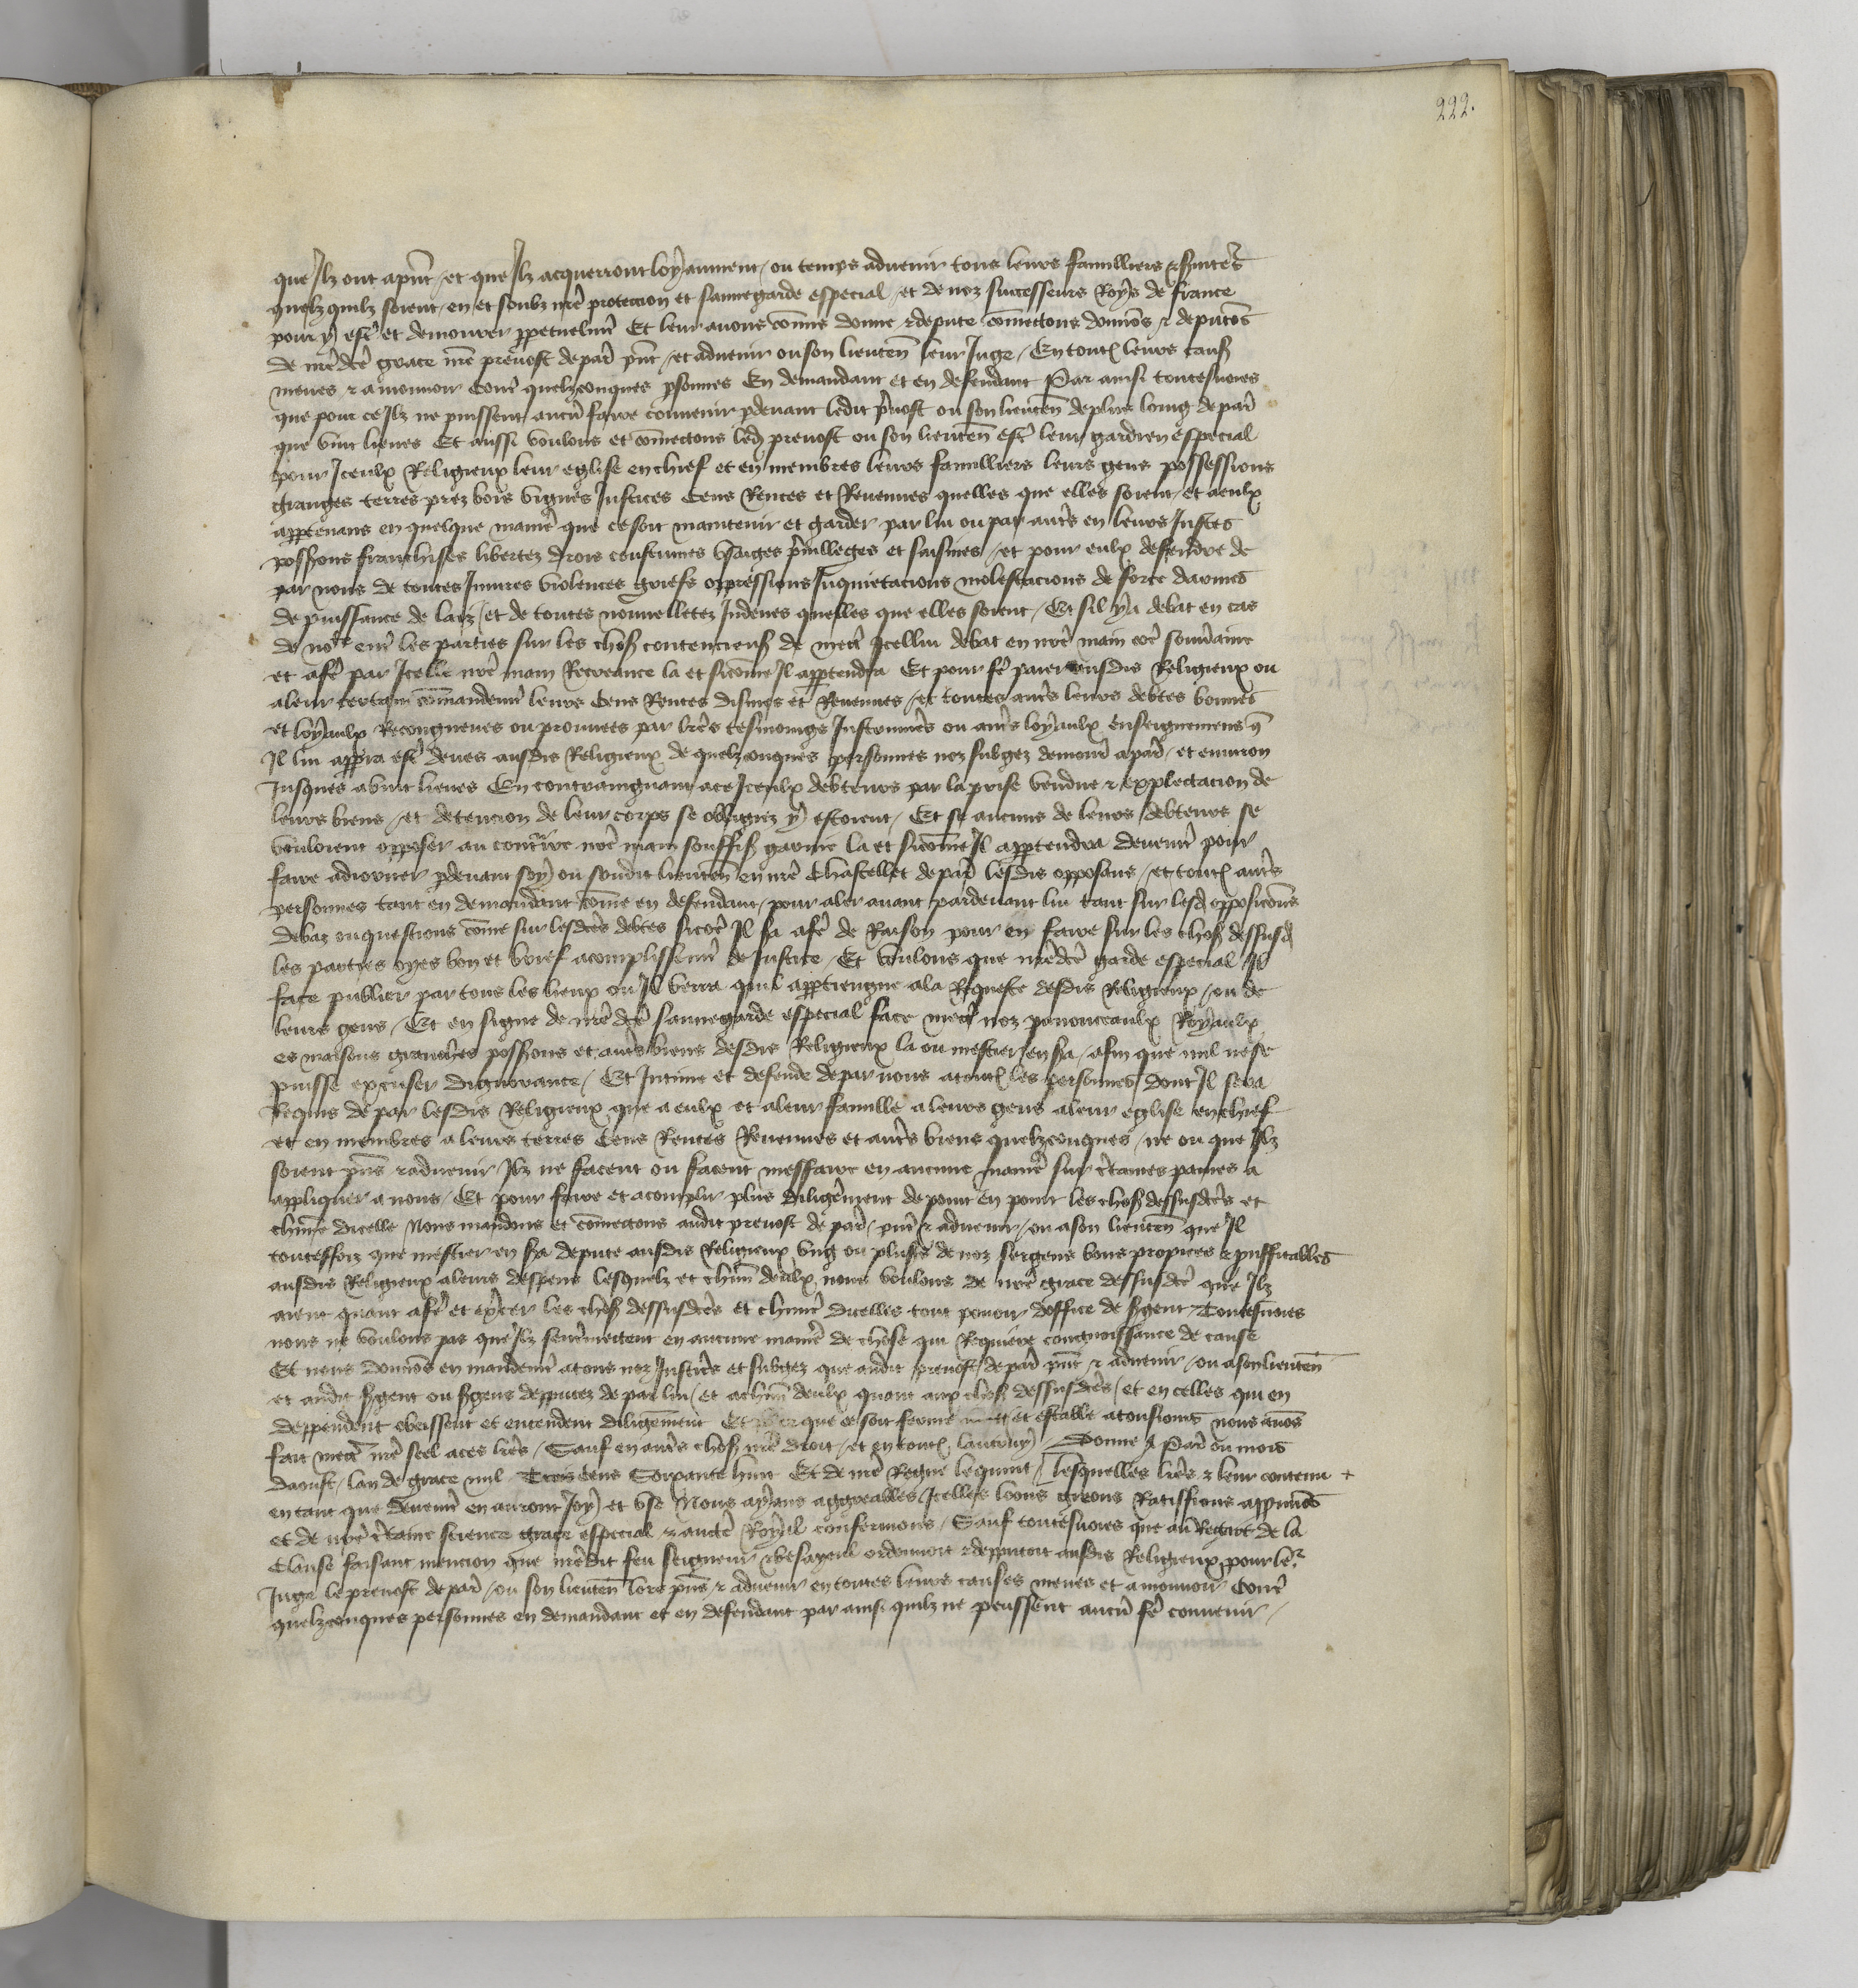 222.
que Ilz ont apñt / et que Ilz acquerront loyaument / ou temps aduenir tous leurs familliers & s̃uiteˀs
quelz quilz soient / en et soubz nr̃e proteccion et sauuegarde especial / et de noz successeurs Roys de france
pour y estr̃ et demourer ꝑpetuelm̃t Et leur auons com̃is donne & depute com̃ettons donnõs & deputõs
de nr̃e dc̃e grace nr̃e preuost de par̃ pñt / et aduenir ou son lieuteñ leur Juge / En toutes leurs causes
meues & amouuoir contr̃ quelzconques ꝑsonnes En demandant et en defendant Par ainsi toutesuoies
que pour ce Ilz ne puissent / aucũ faire conuenir ꝑdeuant ledit p̃uost ou son lieuteñ de plus loing de par̃
que vint lieues Et aussi voulons et com̃ectons led̃ preuost ou son lieuteñ estr̃ leur gardien especial
pour Iceulx Religieux leur eglise en chief et en membres leurs familliers leurs gens possessions
granges terres prez bois vignes Justices Cens Rentes et Reuenues quelles que elles soient / et a eulx
apꝑtenans en quelque manier̃ que ce soit maintenir et garder par lui ou par autr̃s en leurs Justes
poss̃ons franchises libertez drois coustumes vsaiges p̃uilleges et saisines / et pour eulx defendre de
par nous de toutes Iniures violences griefs oppressions Inquietacions molestacions de force darmes
de puissance de laiz / et de toutes nouuelletez Indeues quelles que elles soient / Et sil y a debat en cas
de nouũte entr̃ les parties sur les choses contencieuses de mectr̃ Icellui debat en nr̃e main com̃e souu̾aine
et a fr̃e par Icelle nr̃e main Recreance la et si com̃e Il apꝑtendra Et pour fr̃e paier ausdis Religieux ou
a leur certain com̃andem̃t leurs Cens Rentes disines et Reuenues / et toutes autr̃s leurs debtes bonnes
et loyaulx Recongneues ou prouuees par lr̃es tesmoings Instrumẽs ou autr̃s loyaulx enseignemens q̃
Il lui appẽra estr̃ deues ausdis Religieux de quelzconques personnes noz subgez demour̃ a par̃ / et enuiron
Jusques a vint lieues En contraingnant a ce Iceulx debteurs par la prise vendue & expletacion de
leurs biens / et detencion de leur corps se obligiez y estoient / Et se aucuns de leurs debteurs se
vouloient opposer au contr̃ire nr̃e main souffis̃ garnie la et si com̃e Il apꝑtendra deuem̃t pour
faire adiourner ꝑdeuant soy ou sondit lieuteñ en nr̃e Chastellet de par̃ lesdis opposans / et toutes autr̃s
personnes tant en demandant com̃e en defendant / pour aler auant pardeuant lui tant sur lesd̃ opposicõns
debaz ou questions com̃e sur lesdc̃es debtes si com̃e Il s̃a a fr̃e de Raison pour en faire sur les choses dessusd̃
les parties oyes bon et brief acomplissem̃t de Justice / Et voulons que nr̃e dc̃e garde especial Il
face publier par tous les lieux ou Il verra quil apꝑtiengne a la Requeste desdis Religieux / ou de
leurs gens / Et en signe de nr̃e dc̃e sauuegarde especial face mectr̃ noz pannonceaulx Royaulx
es maisons granches poss̃ons et autr̃s biens desdis Religieux la ou mestier en s̃a / afin que nul ne se
puisse excuser dignorance / Et Intime et defende de par nous a toutes les personnes dont Il sera
Requis de par lesdis Religieux que a eulx et a leur famille a leurs gens a leur eglise en chief
et en membres a leurs terres Cens Rentes Reuenues et autr̃s biens quelzconques / ne ou que Ilz
soient pñs & aduenir / Ilz ne facent ou facent meffaire en aucune manier̃ sur c̃taines paines a
appliquer a nous / Et pour faire et acomplir plus diligẽment de point en point les choses dessusdc̃es et
chũne dicelle Nous mandons et com̃ectons audit preuost de par̃ / pñt & aduenir / ou a son lieuteñ que Il
touteffoiz que mestier en s̃a depute ausdis Religieux vng ou plusrs̃ de noz sergens bons propices & prouffitables
ausdis Religieux a leurs despens lesquelz et chũn deulx nous voulons de nr̃e grace dessusdc̃e que Ilz
aient quant a fr̃e et ex̃cer les choses dessusdc̃es et chũne dicelles tout pouoir doffice de s̃gent Toutesuoies
nous ne voulons pas que Ilz sentr̃mectent en aucune manier̃ de chose qui Requiere congnoissance de cause
Et nous donnõs en mandem̃t a tous noz Justic̃rs et subgez que audit preuost de par̃ pñt & aduenir / ou a son lieuteñ
et audit s̃gent ou s̃gens deputez de par lui / et a chũn deulx quant aux choses dessusdc̃es / et en celles qui en
deppendent obeissent et entendent diligẽment Et que ce soit ferme et estable a tousiours nous auõs
fait mectr̃ nr̃e seel a ces lr̃es / Sauf en autr̃s choses nr̃e droit / et en toutes lautruy / Donne a Par̃ ou mois
daoust / lan de grace mil Trois Cens Soixante huit Et de nr̃e Regne le quint / lesquelles lr̃es & leur contenu +
en tant que deuem̃t en auront Joy et vse Nous ayans aggreables Icelles loons greons Ratiffions appuuõs
et de nr̃e c̃taine science grace especial & auctc̃e Royal confermons / Sauf toutesuoies que au Regart de la
Clause faisant mencion que nr̃edit feu seigneur & besayeul ordonnoit & depputoit ausdis Religieux pour leˀ
Juge le preuost de par̃ / ou son lieuteñ lors pñs & aduenir en toutes leurs causes meues et a mouuoir Contr̃
quelzconques personnes en demandant et en defendant par ainsi quilz ne peussent aucũ fr̃e conuenir /